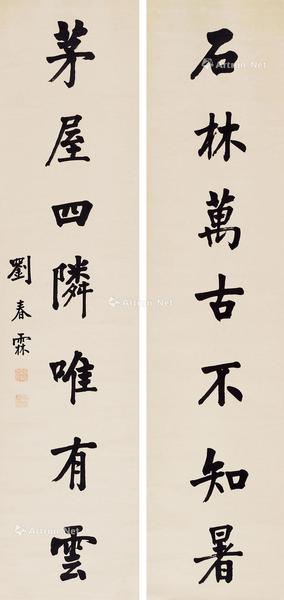 石林萬古不知暑
茅屋四隣唯有雲
劉春霖
Artron.Net
Artron.Net
Artron.Net
Artron.Net
Artron.Net